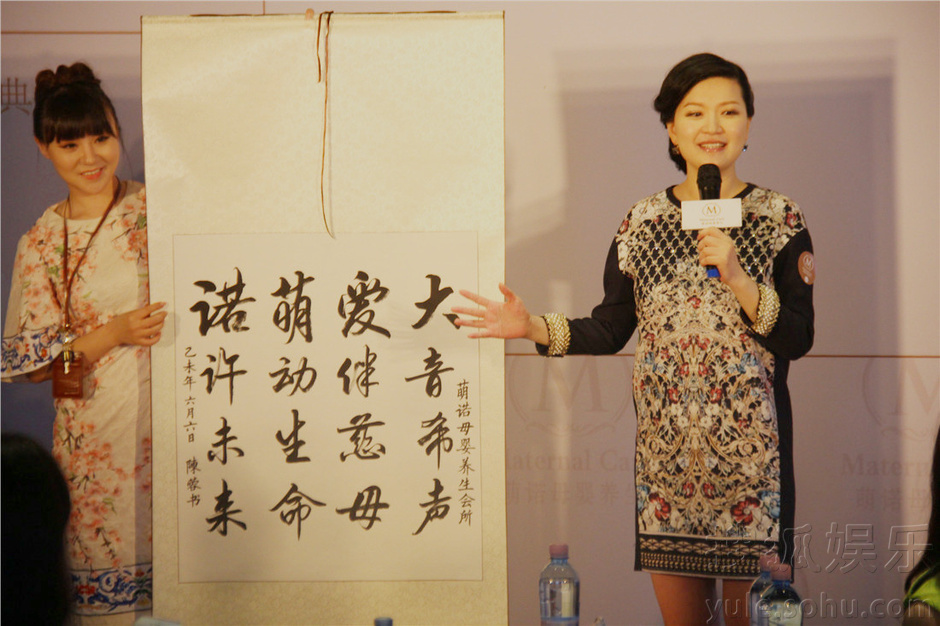 典
萌诺母婴养生会所
大音希声
爱伴慈母
萌动生命
诺许未来
乙未年 六月六日 陳蓉书
M
M
Maternal Ca
M
Mater
搜狐娱乐
yule.sohu.com